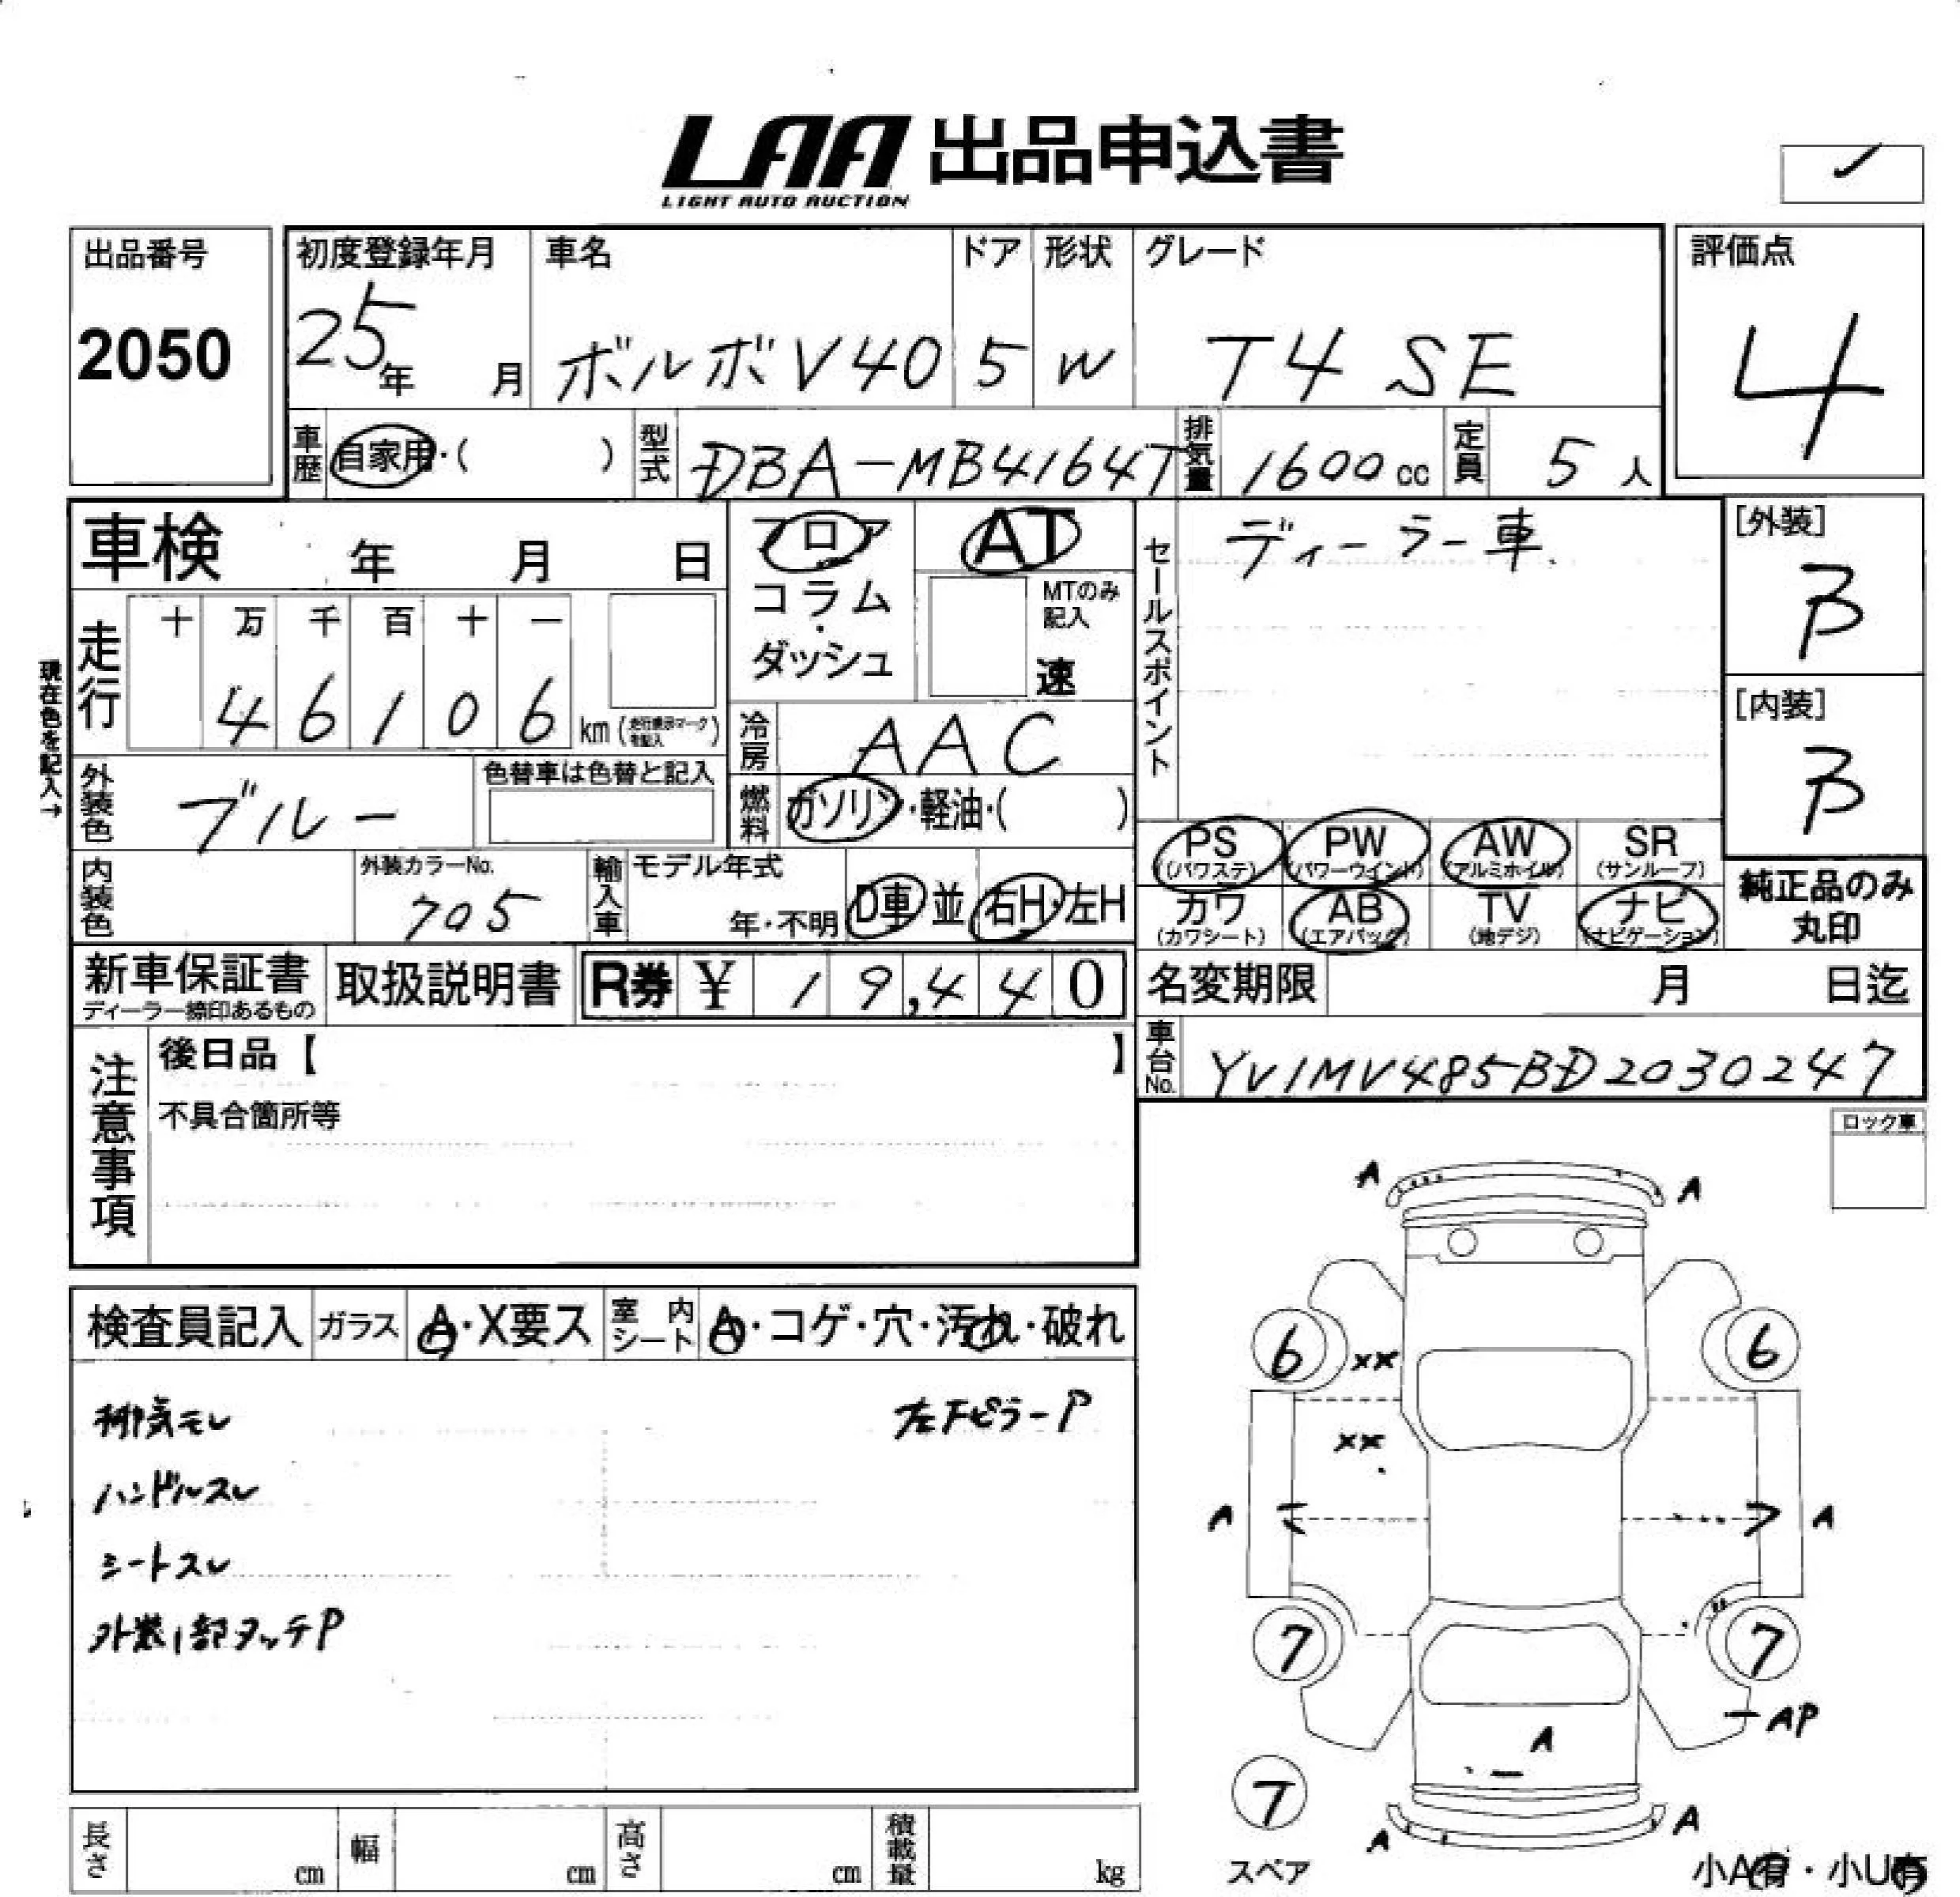 LAA 出品申込書
LIGHT AUTO AUCTION
出品番号
2050
初度登録年月
25年 月
車名
ボルボV40
ドア
5
形状
W
グレード
T4 SE
評価点
4
車歴
自家用・( )
型式
DBA-MB4164T
排気量
1600cc
定員
5人
車検 年 月 日
フロア
コラム
・
ダッシュ
AT
MTのみ
記入
速
セールスポイント
ディーラー車.
[外装]
B
[内装]
B
現在色を記入→
走行
十 万 千 百 十 一
4 6 1 0 6 km
冷房
AAC
外装色
ブルー
色替車は色替と記入
燃料
ガソリン・軽油・( )
内装色
外装カラーNo.
705
輸入車
モデル年式
年・不明
D車 並
右H・左H
PS
(パワステ)
PW
(パワーウインド)
AW
(アルミホイル)
SR
(サンルーフ)
カワ
(カワシート)
AB
(エアバック)
TV
(地デジ)
ナビ
(ナビゲーション)
純正品のみ
丸印
新車保証書
ディーラー捺印あるもの
取扱説明書
R券 ¥ 19,440
名変期限 月 日迄
車台No.
YV1MV485BD2030247
注意事項
後日品【 】
不具合箇所等
ロック車
検査員記入
ガラス
A・X要ス
室内
シート
A・コゲ・穴・汚れ・破れ
排気モレ
左下ピラーP
ハンドルスレ
シートスレ
外装1部タッチP
A A
6 XX 6
XX
A A
7 7
AP
A
7
スペア
A A
小A有・小U有
長さ cm
幅 cm
高さ cm
積載量 kg